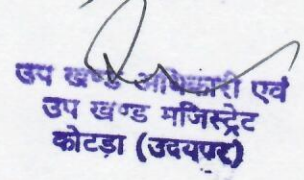 उप खण्ड अधिकारी एवं
उप खण्ड मजिस्ट्रेट
कोटड़ा (उदयपुर)